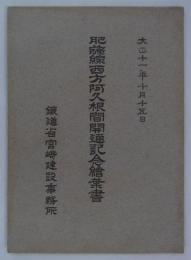 大正十一年十月十五日
肥薩線西方阿久根間開通記念繪葉書
鐵道省宮崎建設事務所